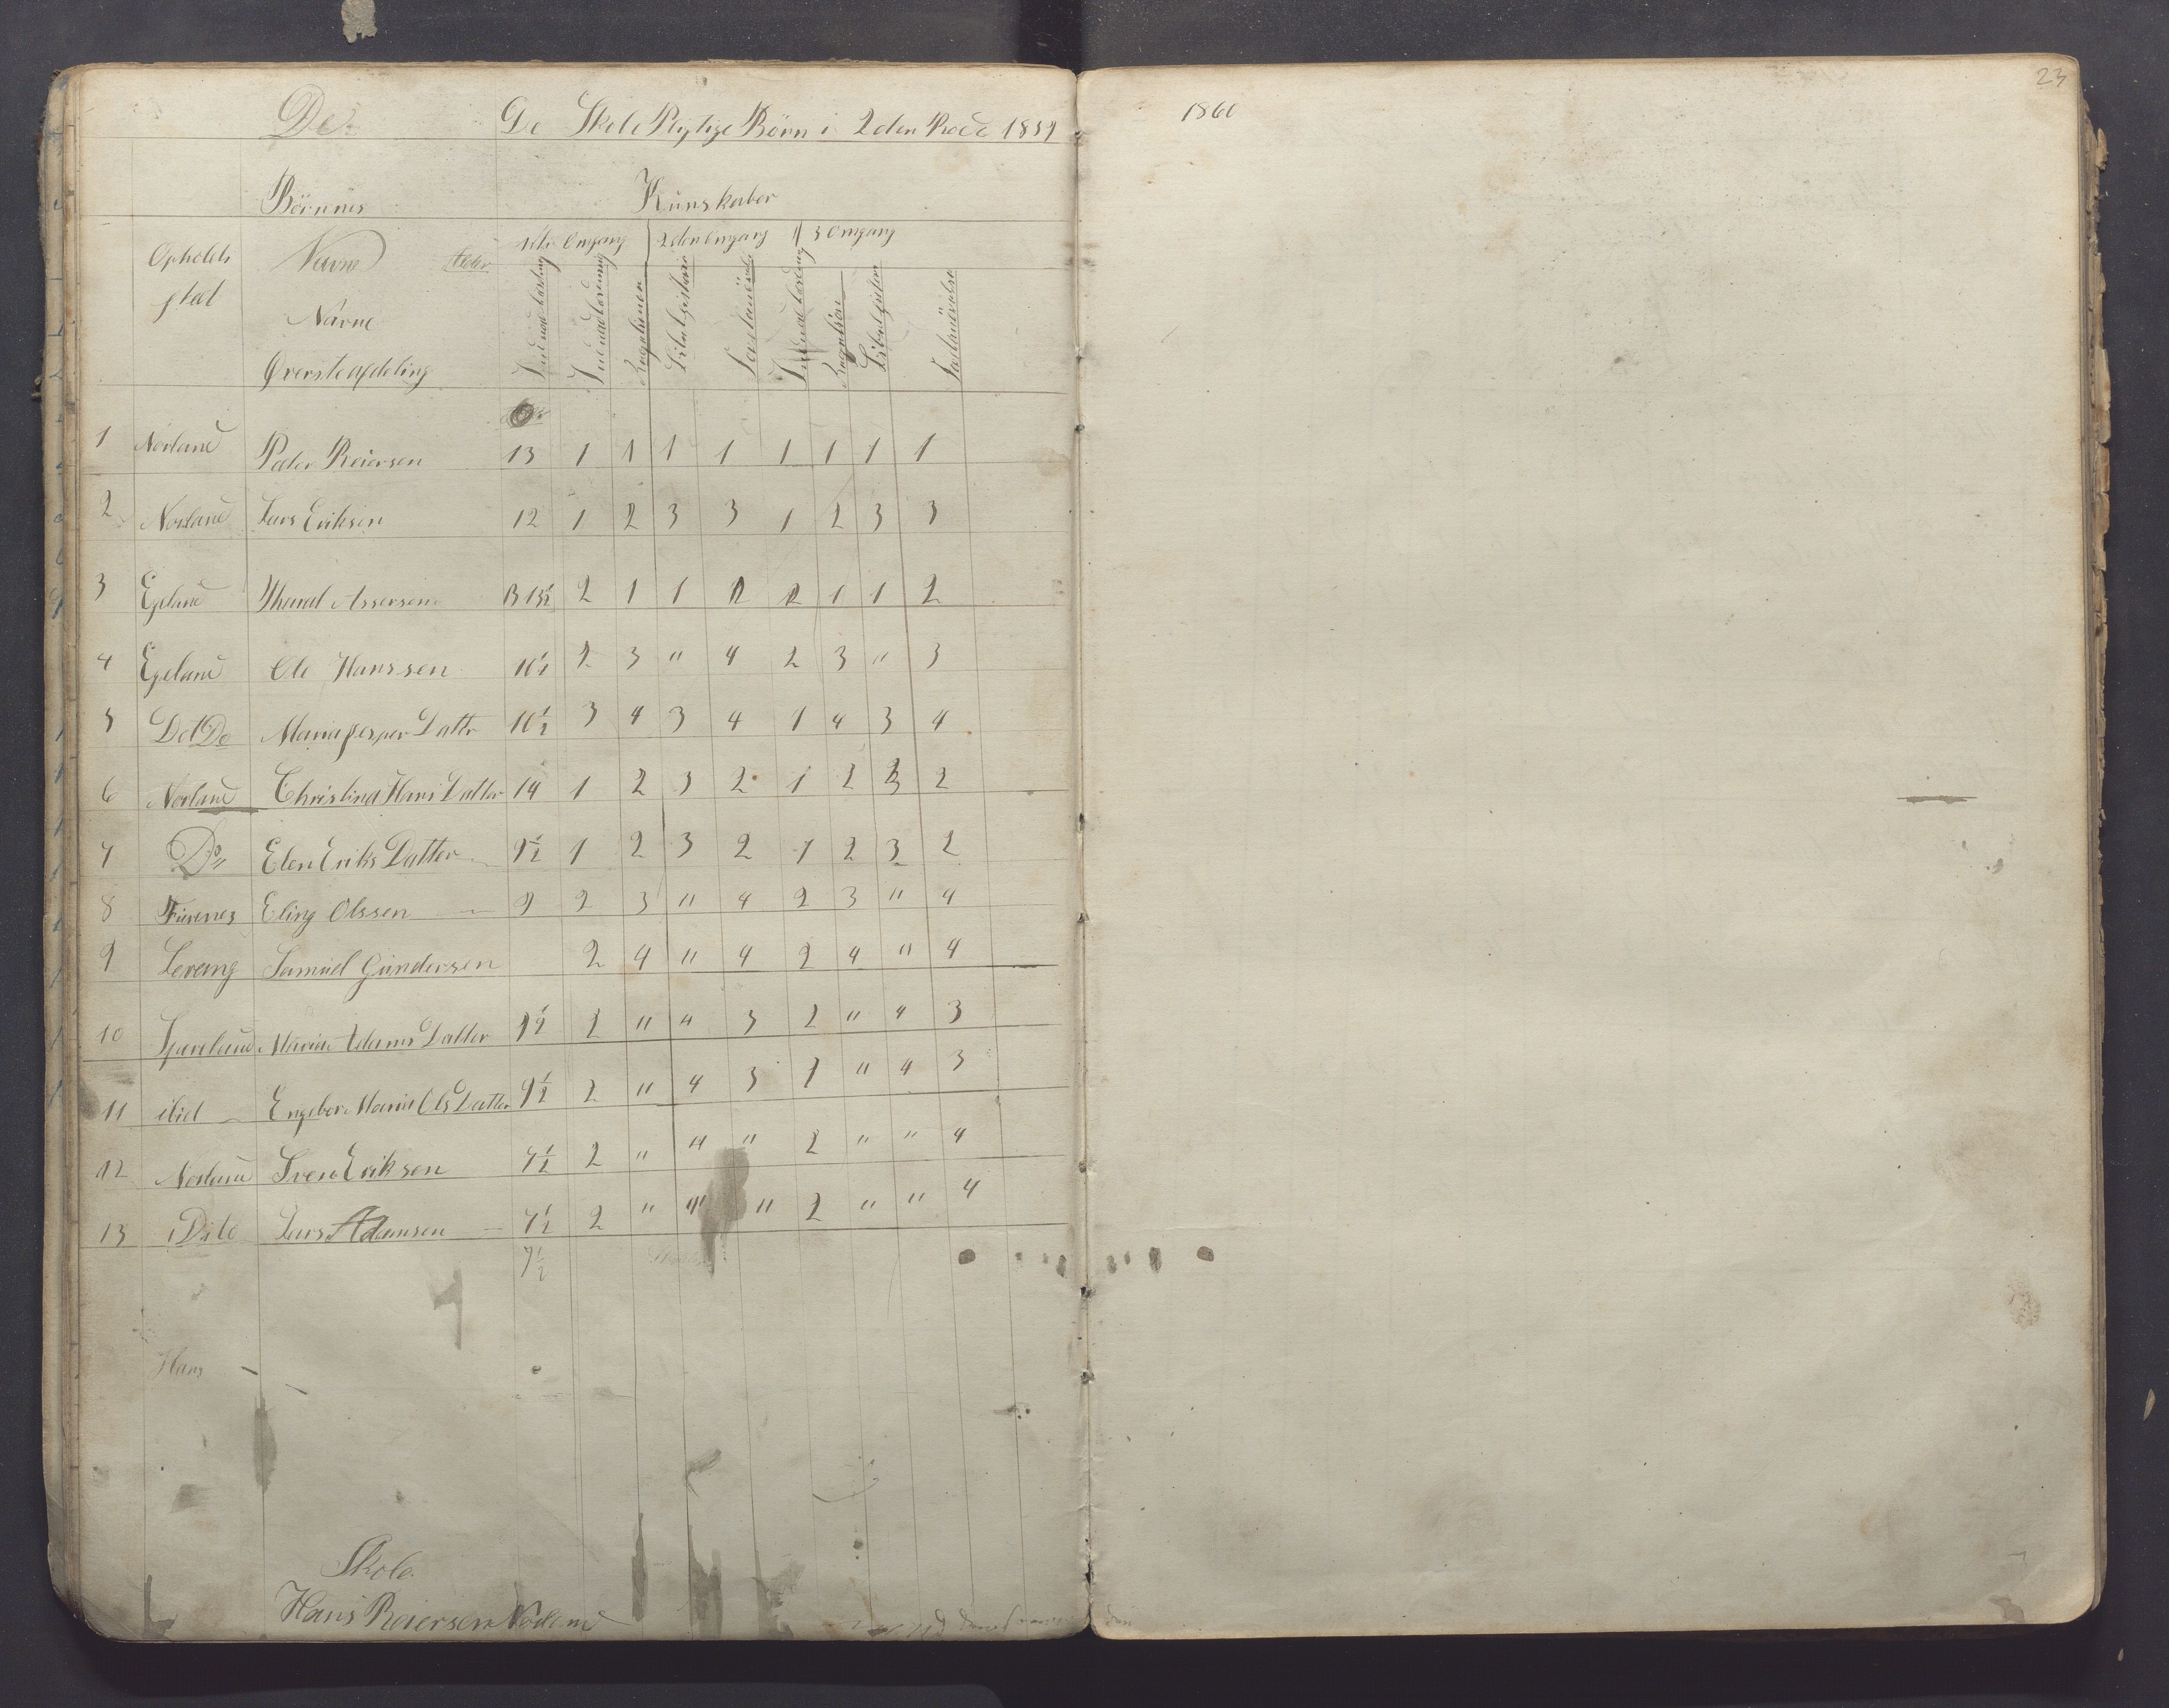 De De Skole Pligtige Børn i 2den Rode 1859
Børnnes Kunskaber
1ste Omgang 2den Omgang 3 Omgang
Opholds Navne Alder
stad
Navne
Øversteafdeling
1 Nörland Peder Reiersen 13 1 1 1 1 1 1 1 1
2 Norland Lars Eriksen 12 1 2 3 3 1 2 3 3
3 Egeland Assersen 13 1/2 2 1 1 2 2 1 1 2
4 Egeland Ole Hanssen 10 1/2 2 3 " 4 2 3 " 3
5 Do Maria Jesper Dattr 10 1/2 3 4 3 4 1 4 3 4
6 Norland Christina Hans Datter 14 1 2 3 2 1 2 3 2
7 Do Elen Eriks Datter 9 1/2 1 2 3 2 1 2 3 2
8 Furenes Eling Olssen 9 2 3 " 4 2 3 " 4
9 Levang Samuel Gundersen 2 4 " 4 2 4 " 4
10 Maria Adams Datter 9 1/2 2 " 4 3 2 " 4 3
11 ibid Engebor Maria Ols Datter 9 1/2 2 " 4 3 2 " 4 3
12 Norland Sven Eriksen 7 1/2 2 " " " 2 " " 4
13 Dito Lars Adamsen 7 1/2 2 " " " 2 " " 4
7 1/2
Hans
Skole
Hans Reiersen Nörland
1860
23